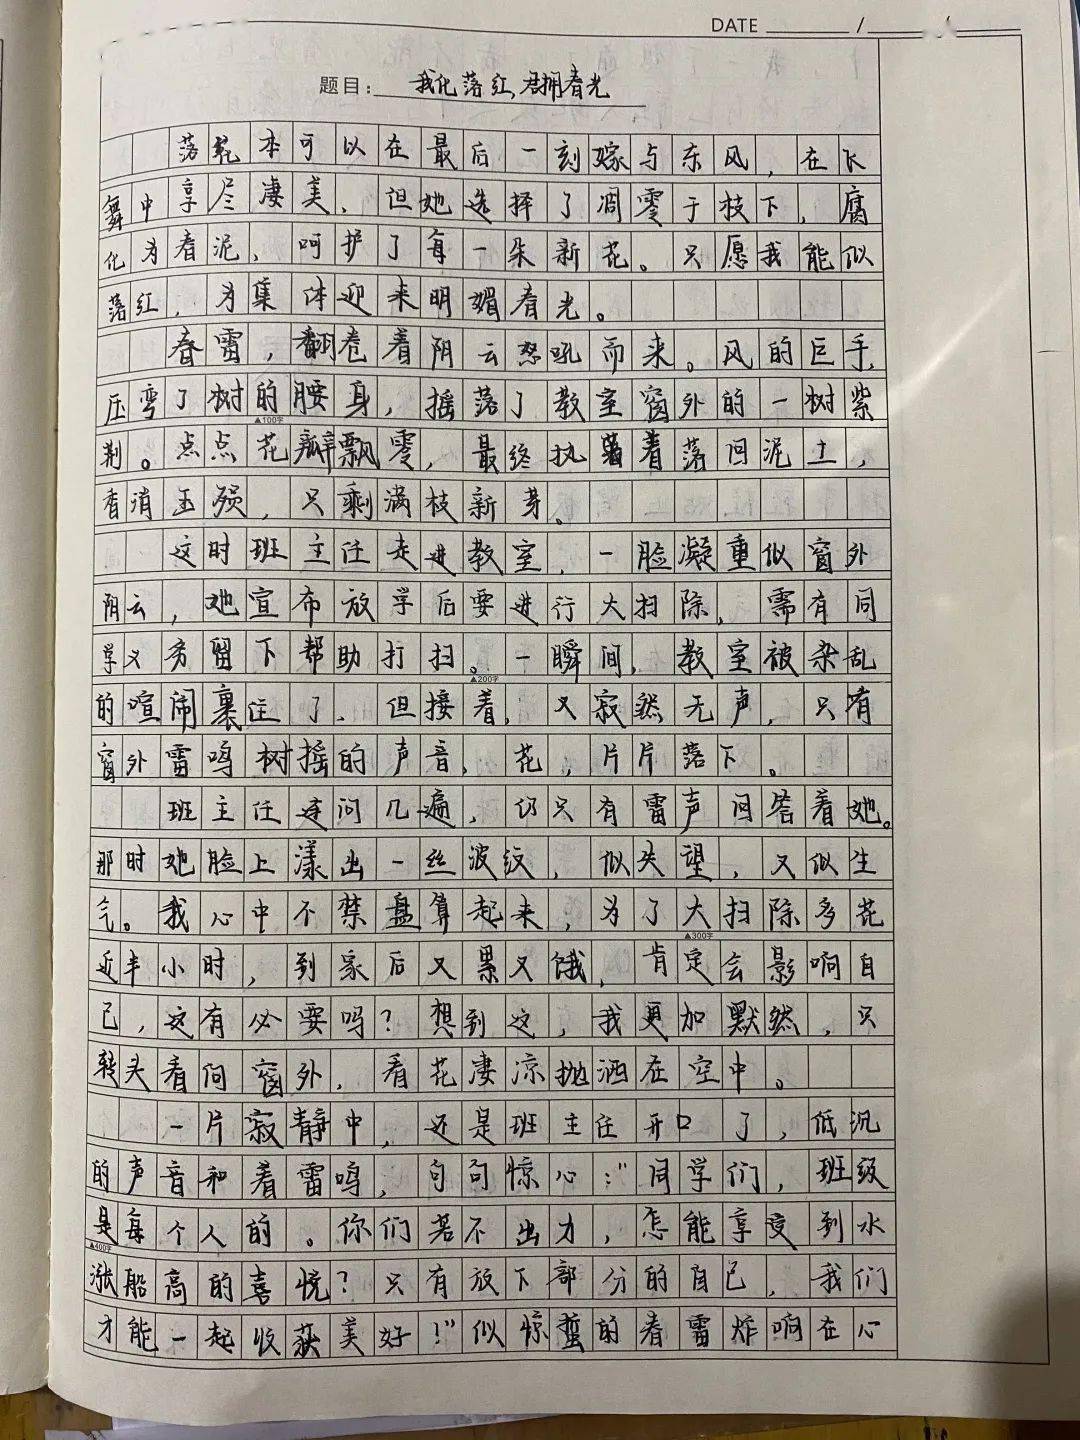 DATE / /
题目：我化落红，君拥春光
落花本可以在最后一刻嫁与东风，在飞
舞中享尽凄美，但她选择了凋零于枝下，腐
化为春泥，呵护了每一朵新花。只愿我能似
落红，为集体迎来明媚春光。
春雷，翻卷着阴云怒吼而来。风的巨手，
压弯了树的腰身，摇落了教室窗外的一树紫
▲100字
荆。点点花瓣飘零，最终执着落回泥土，
香消玉殒，只剩满枝新芽。
这时班主任走进教室，一脸凝重似窗外
阴云，她宣布放学后要进行大扫除，需有同
学义务留下帮助打扫。一瞬间，教室被杂乱
▲200字
的喧闹裹住了，但接着，又寂然无声，只有
窗外雷鸣树摇的声音，花，片片落下。
班主任连问几遍，仍只有雷声回答着她。
那时她脸上漾出一丝波纹，似失望，又似生
气。我心中不禁盘算起来，为了大扫除多花
▲300字
近半小时，到家后又累又饿，肯定会影响自
己，这有必要吗？想到这，我更加默然，只
转头看向窗外，看花凄凉抛洒在空中。
一片寂静中，还是班主任开口了，低沉
的声音和着雷鸣，句句惊心："同学们，班级
是每个人的。你们若不出力，怎能享受到水
▲400字
涨船高的喜悦？只有放下部分的自己，我们
才能一起收获美好！"似惊蛰的春雷炸响在心